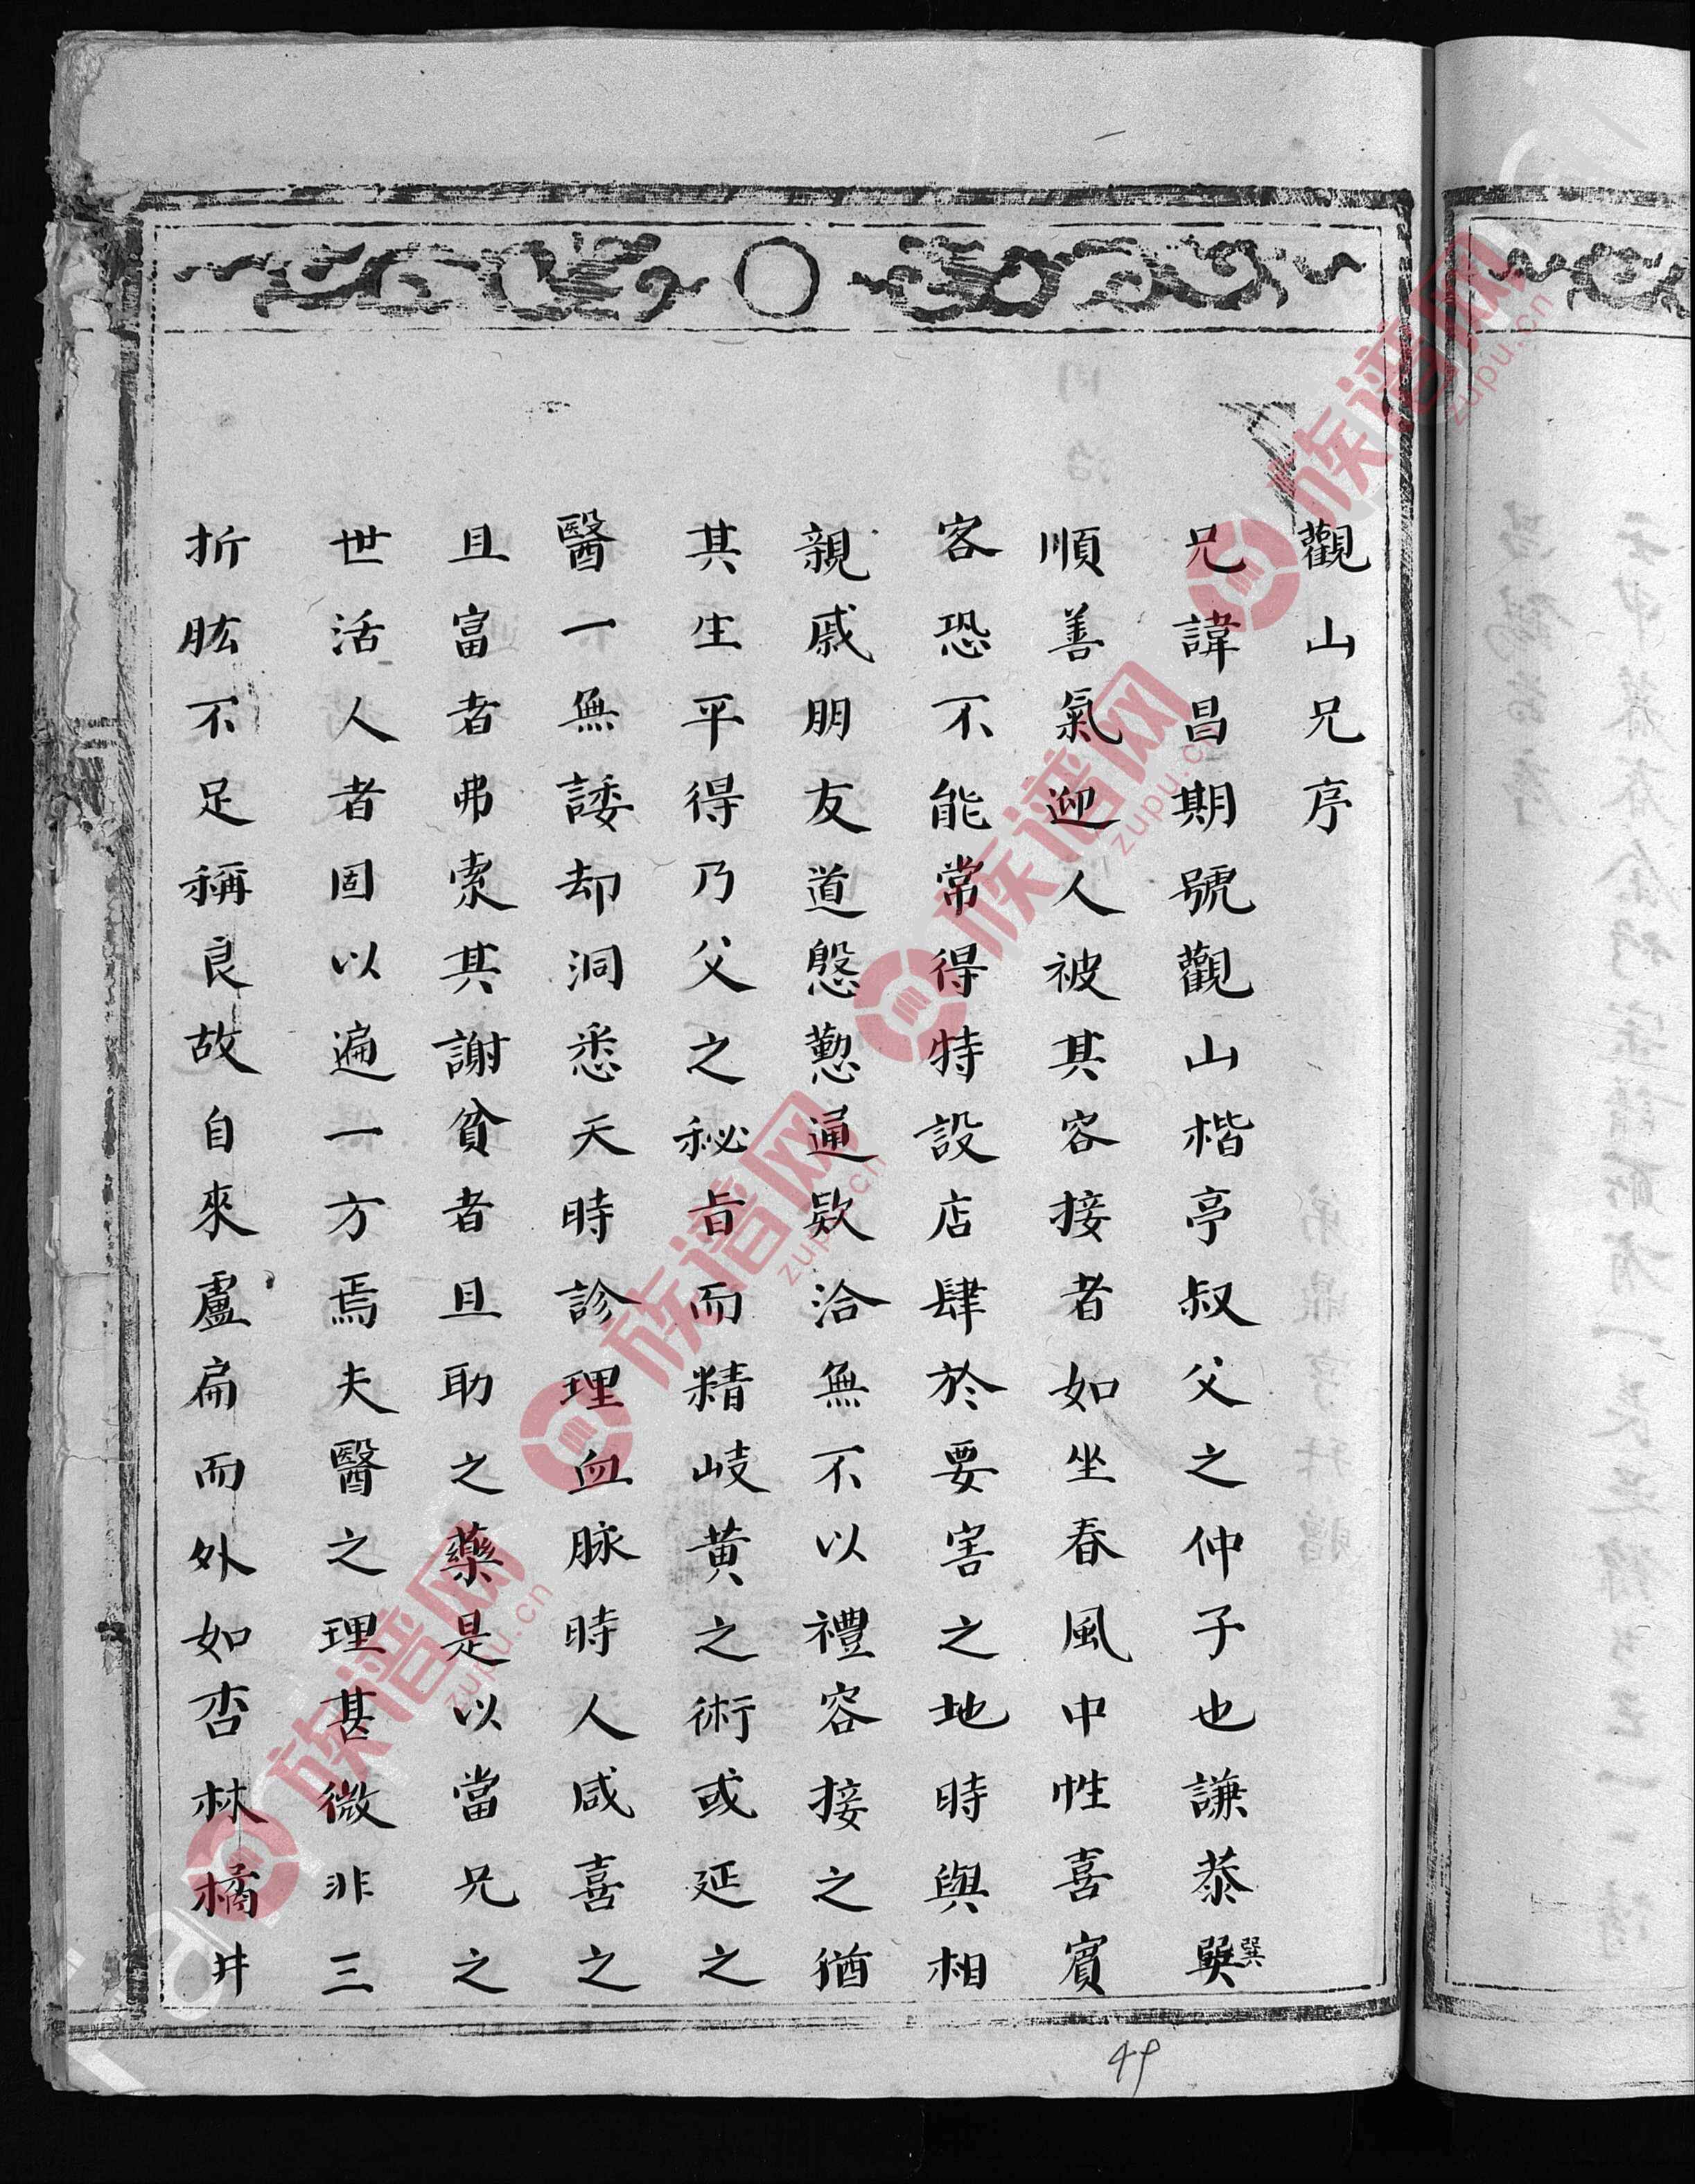 觀山兄序
兄諱昌期號觀山楷亭叔父之仲子也謙恭巽巽
順善氣迎人被其容接者如坐春風中性喜賓
客恐不能常得特設店肆於要害之地時與相
親戚朋友道慇懃通欵洽無不以禮容接之猶
其生平得乃父之秘旨而精岐黃之術或延之
醫一無諉却洞悉天時診理血脉時人咸喜之
且富者弗索其謝貧者且助之藥是以當兄之
世活人者固以遍一方焉夫醫之理甚微非三
折肱不足稱良故自來盧扁而外如杏林橘井
49
族谱网
zupu.cn
族谱网
zupu.cn
族谱网
zupu.cn
族谱网
zupu.cn